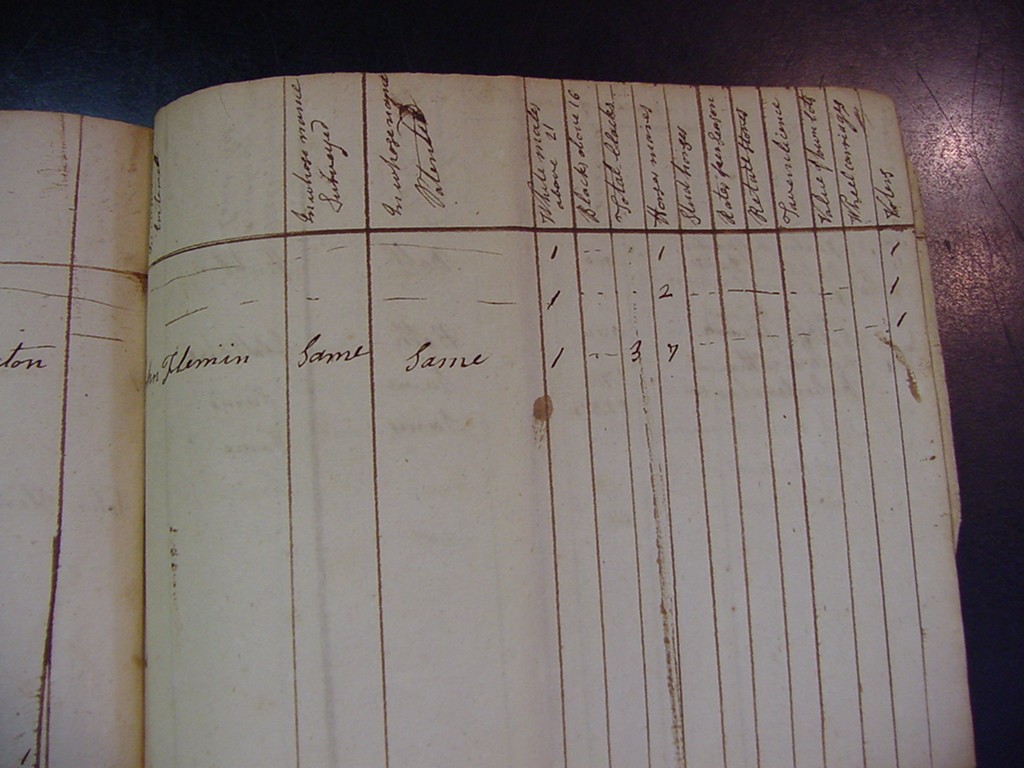 Entered
In whose name Surveyed
In whose name Patented
White males above 21
Blacks above 16
Total blacks
Horses mares
Stud horses
Rates per season
Retail stores
Tavern licence
Value pr hundred
Wheel carriages
Voters
1 - - 1 1
1 - - - 2 - - - - - 1
1
ton Flemiin Same Same 1 - - 3 7